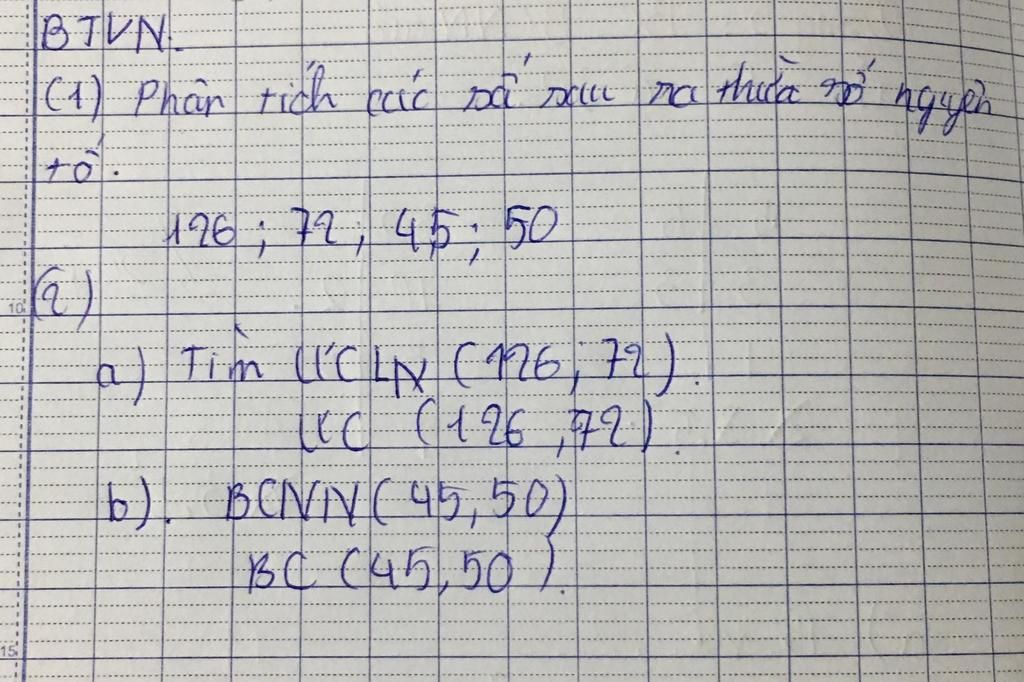 BTVN.
(1) Phân tích các số sau ra thừa số nguyên
tố.
126 ; 72 ; 45 ; 50
(2)
a) Tìm ƯCLN (126 ; 72).
ƯC (126 , 72).
b). BCNN (45, 50)
BC (45, 50).
10
15